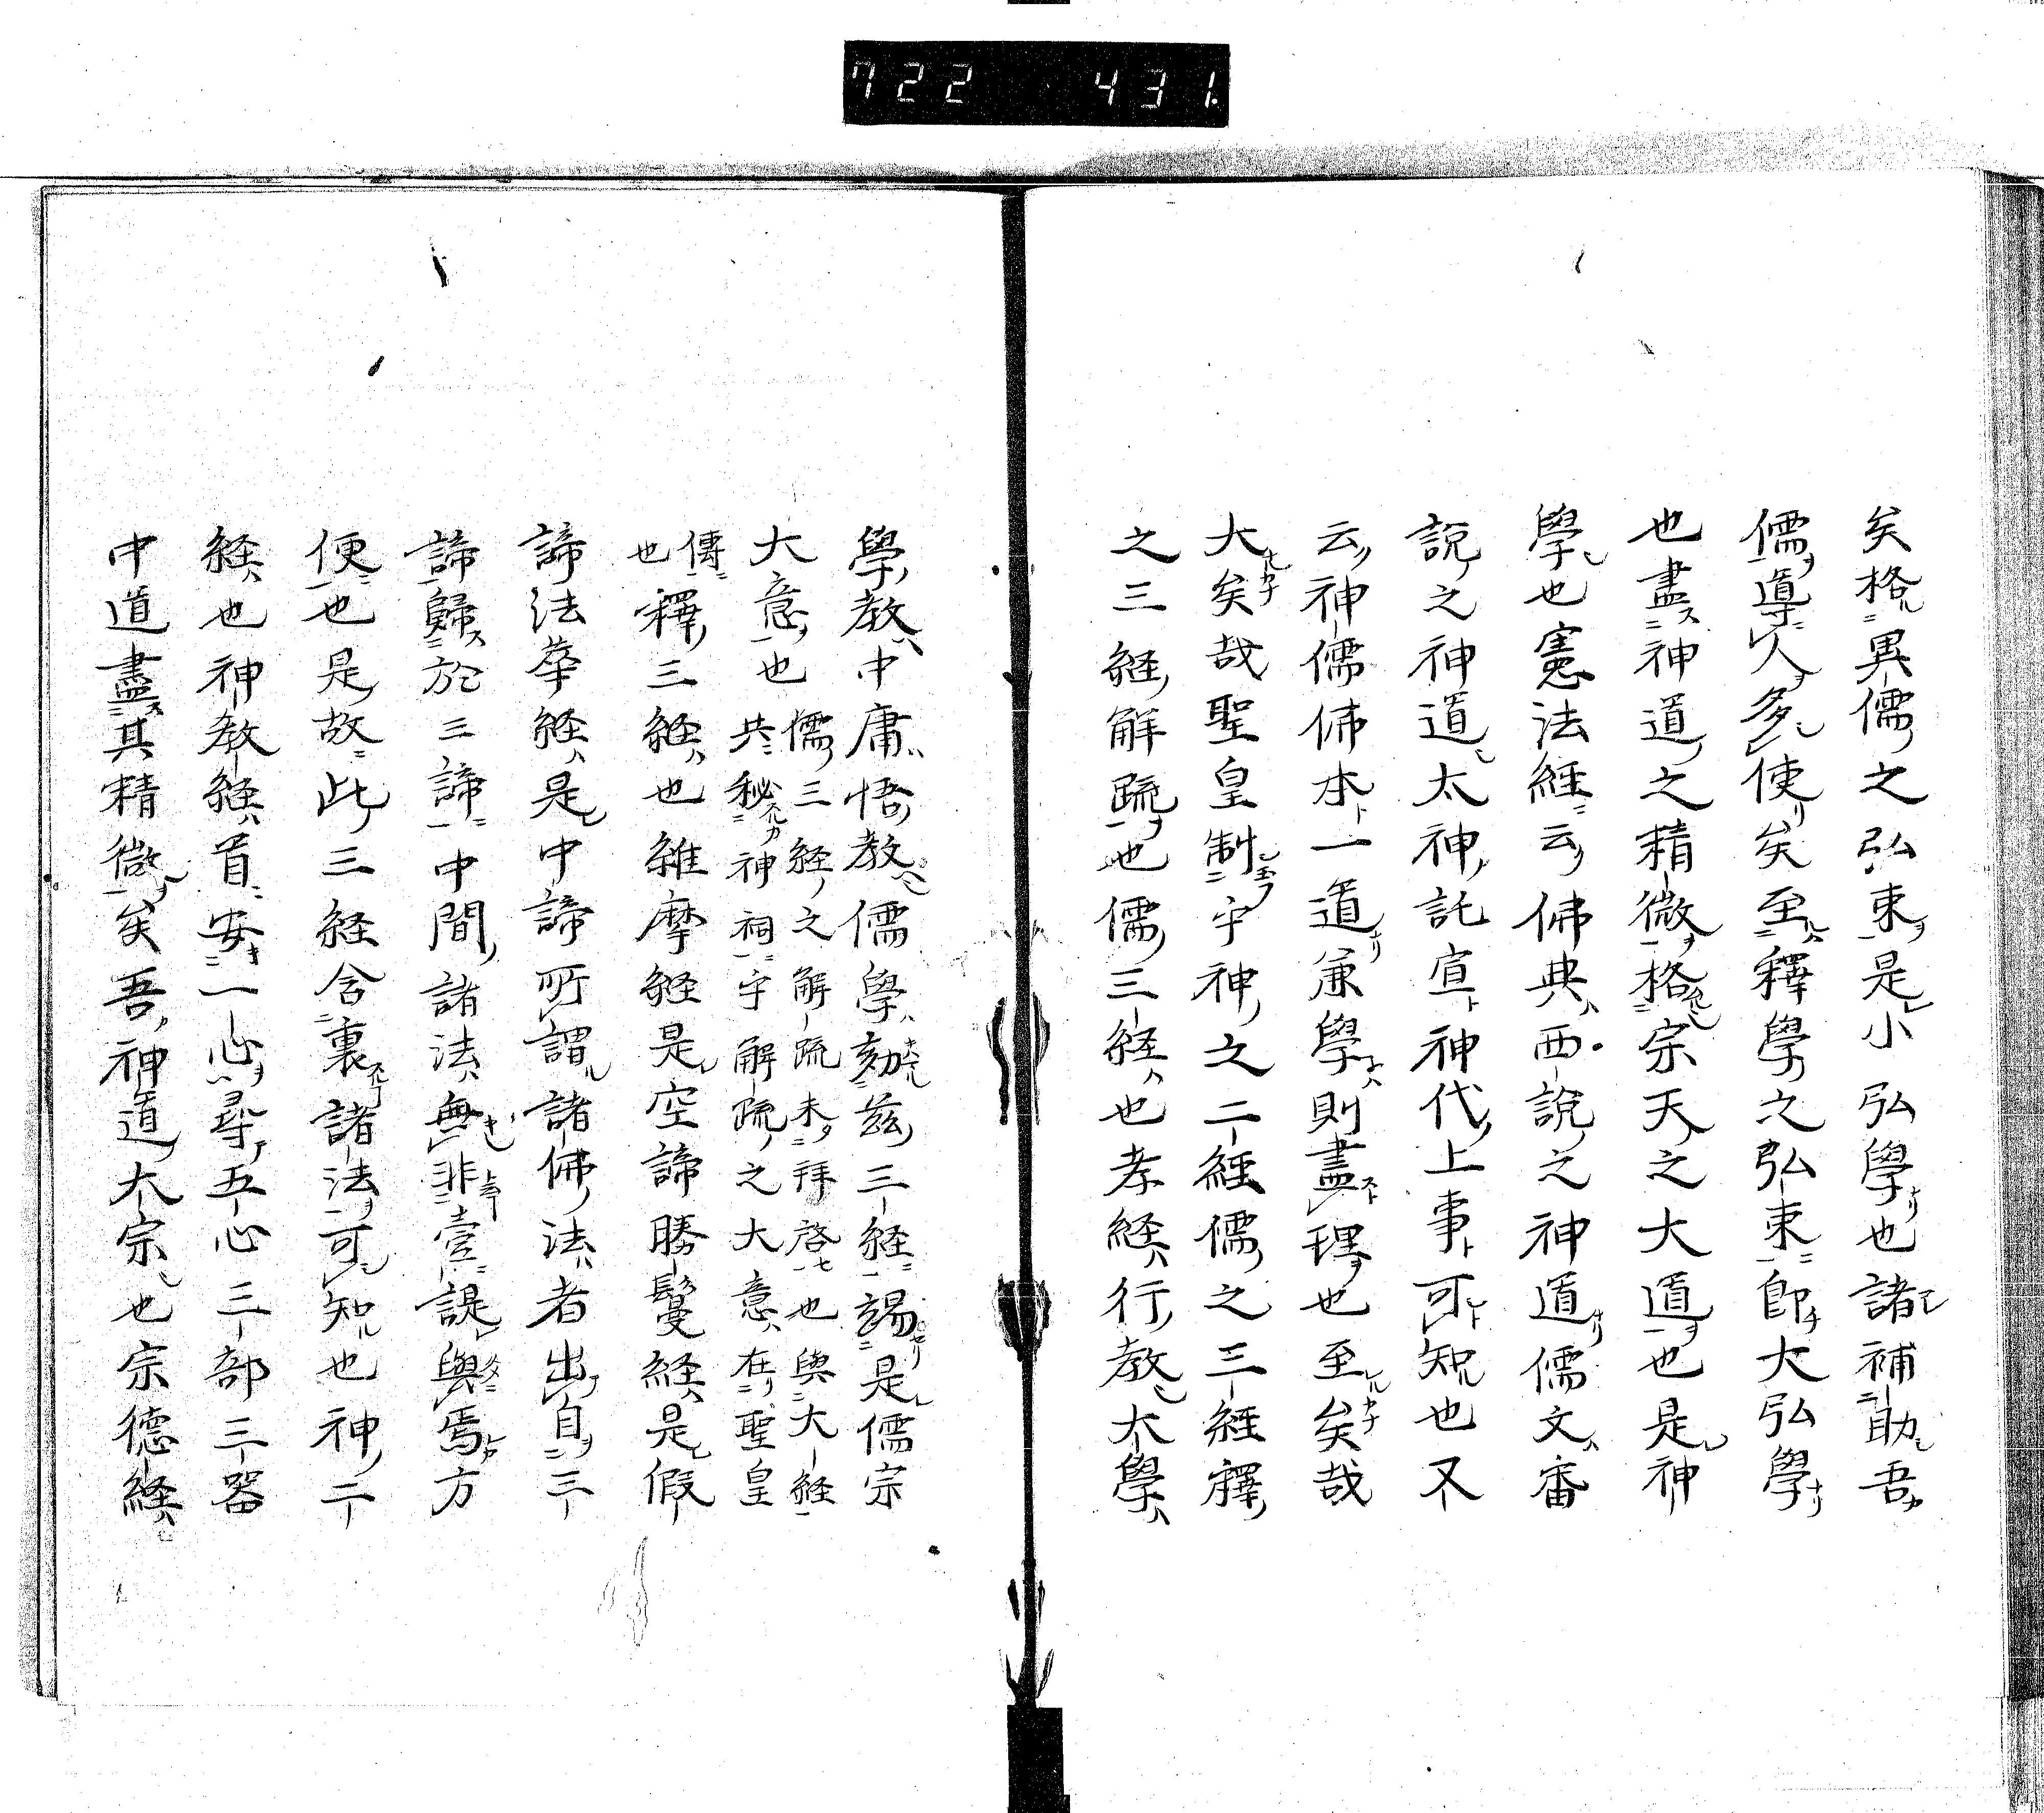 722 431.
矣格異儒之弘東是小弘學也諸補助吾
儒導人多使矣至釋學之弘東即大弘學
也盡神道之精微格宗天之大道也是神
學也憲法經云佛典西說之神道儒文審
說之神道太神託宣神代上事可知也又
云神儒佛本一道兼學則盡理也至矣哉
大矣哉聖皇制宇神之二經儒之三經釋
之三經解疏也儒三經也孝経行教大學
學教中庸悟教儒學劾茲三経謁是儒宗
大意也儒三経之解疏未拜啓也與大経
共秘神祠宇解疏之大意在聖皇
傳也釋三経也維摩経是空諦勝鬘経是假
諦法華経是中諦所謂諸佛法者出自三
諦歸於三諦中間諸法無非壹諟與焉方
便也是故此三経含裏諸法可知也神二
経也神教経首安一心尋五心三部三器
中道盡其精微矣吾神道大宗也宗德経